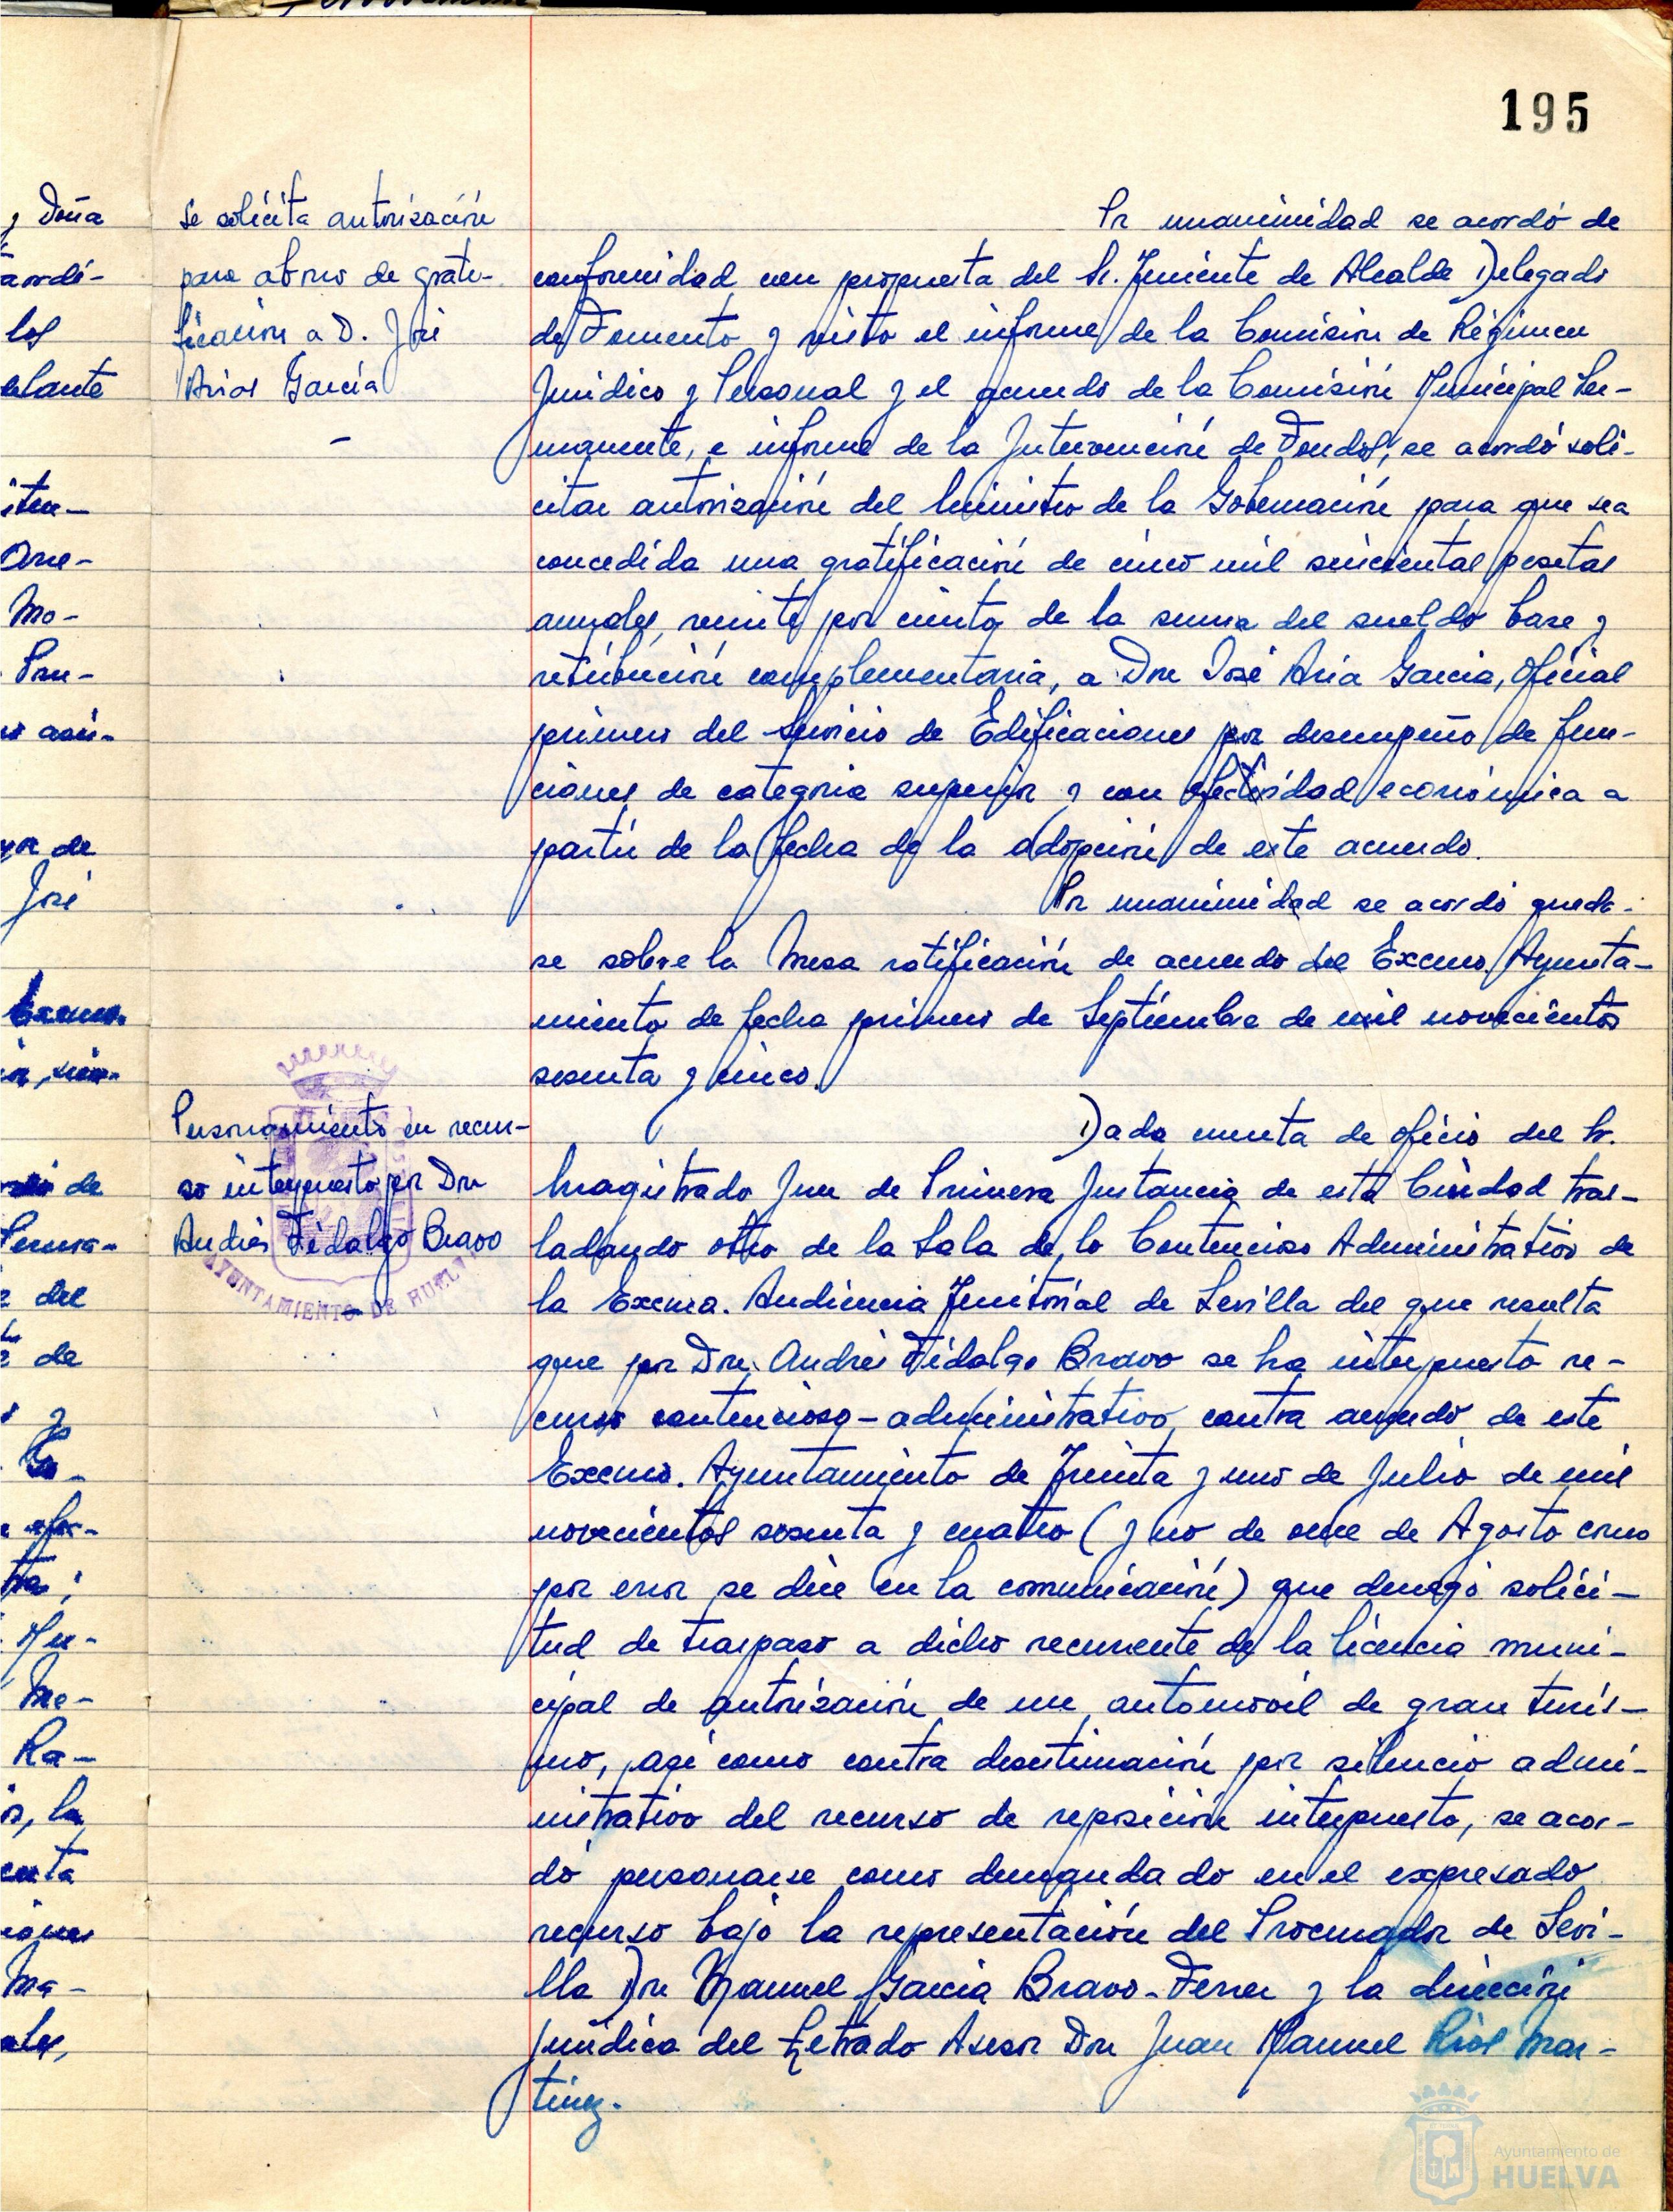 195
Se solicita autorización
para abono de grati-
ficación a D. José
Arias García
Por unanimidad se acordó de
conformidad con propuesta del Sr. Teniente de Alcalde Delegado
de Fomento y visto el informe de la Comisión de Régimen
Jurídico y Personal y el acuerdo de la Comisión Municipal Per-
manente, e informe de la Intervención de Fondos, se acordó soli-
citar autorización del Ministro de la Gobernación para que sea
concedida una gratificación de cinco mil seiscientas pesetas
anuales, veinte por ciento de la suma del sueldo base y
retribución complementaria, a Don José Aria García, Oficial
primero del Servicio de Edificaciones por desempeño de fun-
ciones de categoria superior y con efectividad económica a
partir de la fecha de la adopción de este acuerdo.
Por unanimidad se acordó queda-
se sobre la Mesa ratificación de acuerdo del Excmo. Ayunta-
miento de fecha primero de Septiembre de mil novecientos
sesenta y cinco.
Personamiento en recur-
so interpuesto por Don
Andrés Fidalgo Bravo
AYUNTAMIENTO DE HUELVA
Dada cuenta de oficio del Sr.
Magistrado Juez de Primera Instancia de esta Ciudad tras-
ladando otro de la Sala de lo Contencioso Administrativo de
la Excma. Audiencia Territorial de Sevilla del que resulta
que por Don Andrés Fidalgo Bravo se ha interpuesto re-
curso contencioso-administrativo contra acuerdo de este
Excmo. Ayuntamiento de Treinta y uno de Julio de mil
novecientos sesenta y cuatro (y no de once de Agosto como
por error se dice en la comunicación) que denegó solici-
tud de traspaso a dicho recurrente de la licencia muni-
cipal de autorización de un automóvil de gran turis-
mo, así como contra desestimación por silencio admi-
nistrativo del recurso de reposición interpuesto, se acor-
dó personarse como demandado en el expresado
recurso bajo la representación del Procurador de Sevi-
lla Don Manuel García Bravo-Ferrer y la dirección
jurídica del Letrado Asesor Don Juan Manuel Rios Mar-
tinez.
Ayuntamiento de
HUELVA